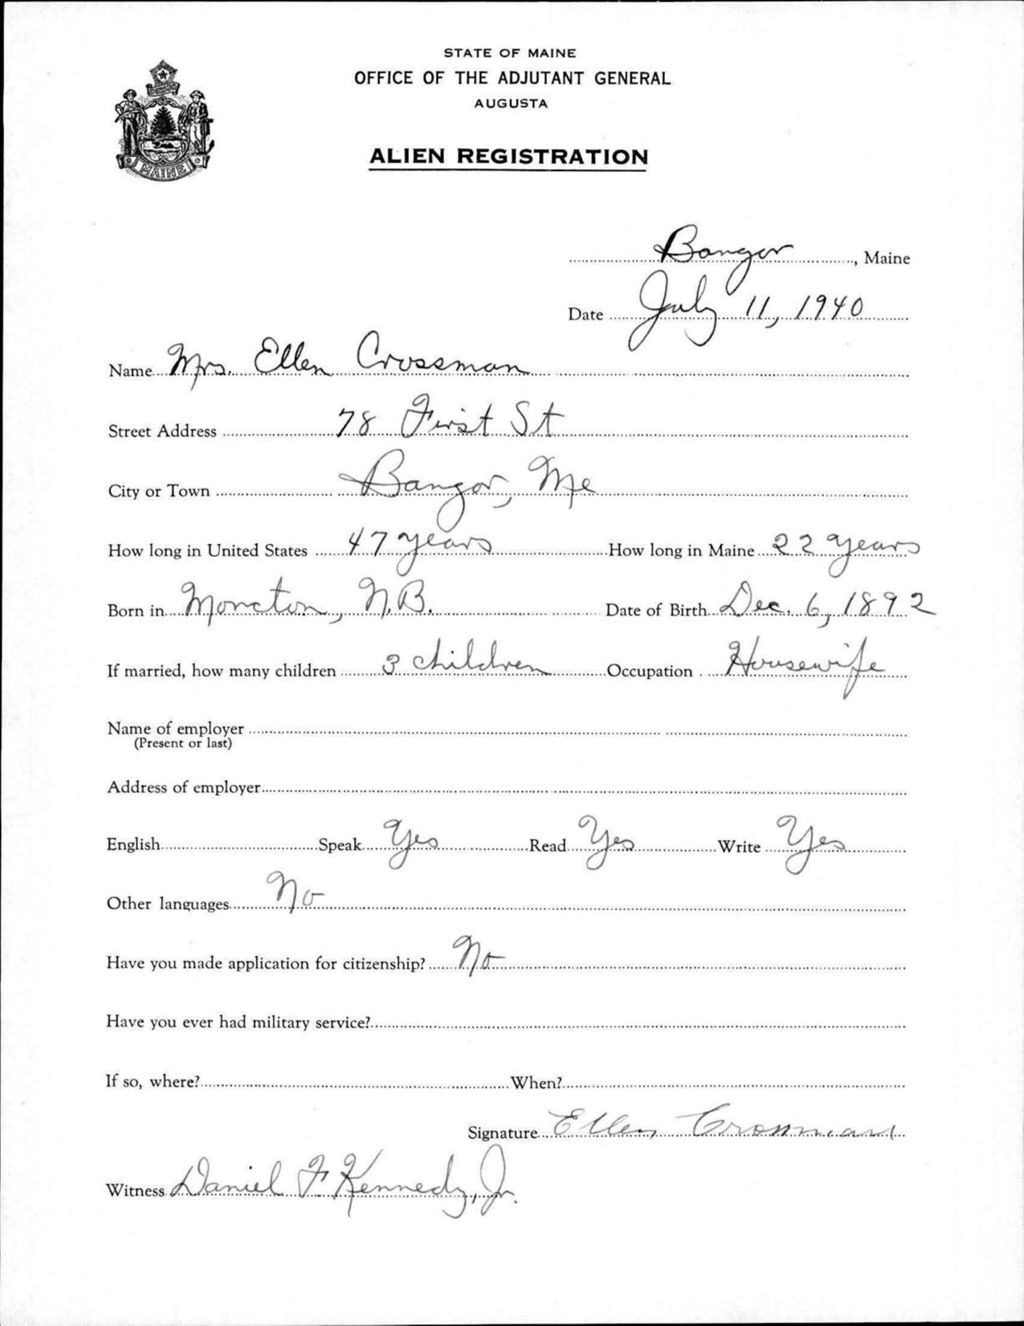 STATE OF MAINE
OFFICE OF THE ADJUTANT GENERAL
AUGUSTA
ALIEN REGISTRATION
MAINE
Bangor, Maine
Date July 11, 1940
Name Mrs. Ellen Crossman
Street Address 78 First St
City or Town Bangor, Me
How long in United States 47 years How long in Maine 22 years
Born in Moncton, N.B. Date of Birth Dec. 6, 1892
If married, how many children 3 children Occupation Housewife
Name of employer
(Present or last)
Address of employer
English Speak Yes Read Yes Write Yes
Other languages No
Have you made application for citizenship? No
Have you ever had military service?
If so, where? When?
Signature Ellen Crossman
Witness Daniel F. Kennedy, Jr.